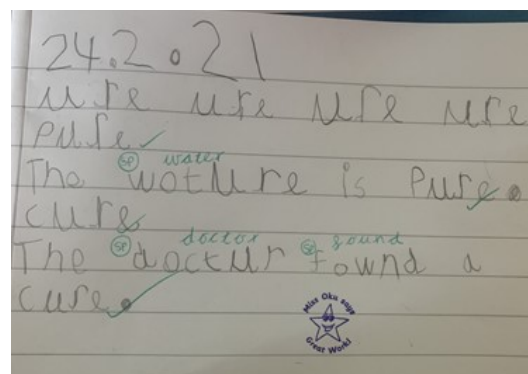 24.2.021
ure ure ure ure
pure
sp water
The woture is pure.
cure
doctor sp found
The doctur fownd a
cure.
Miss Oku says
Great Work!